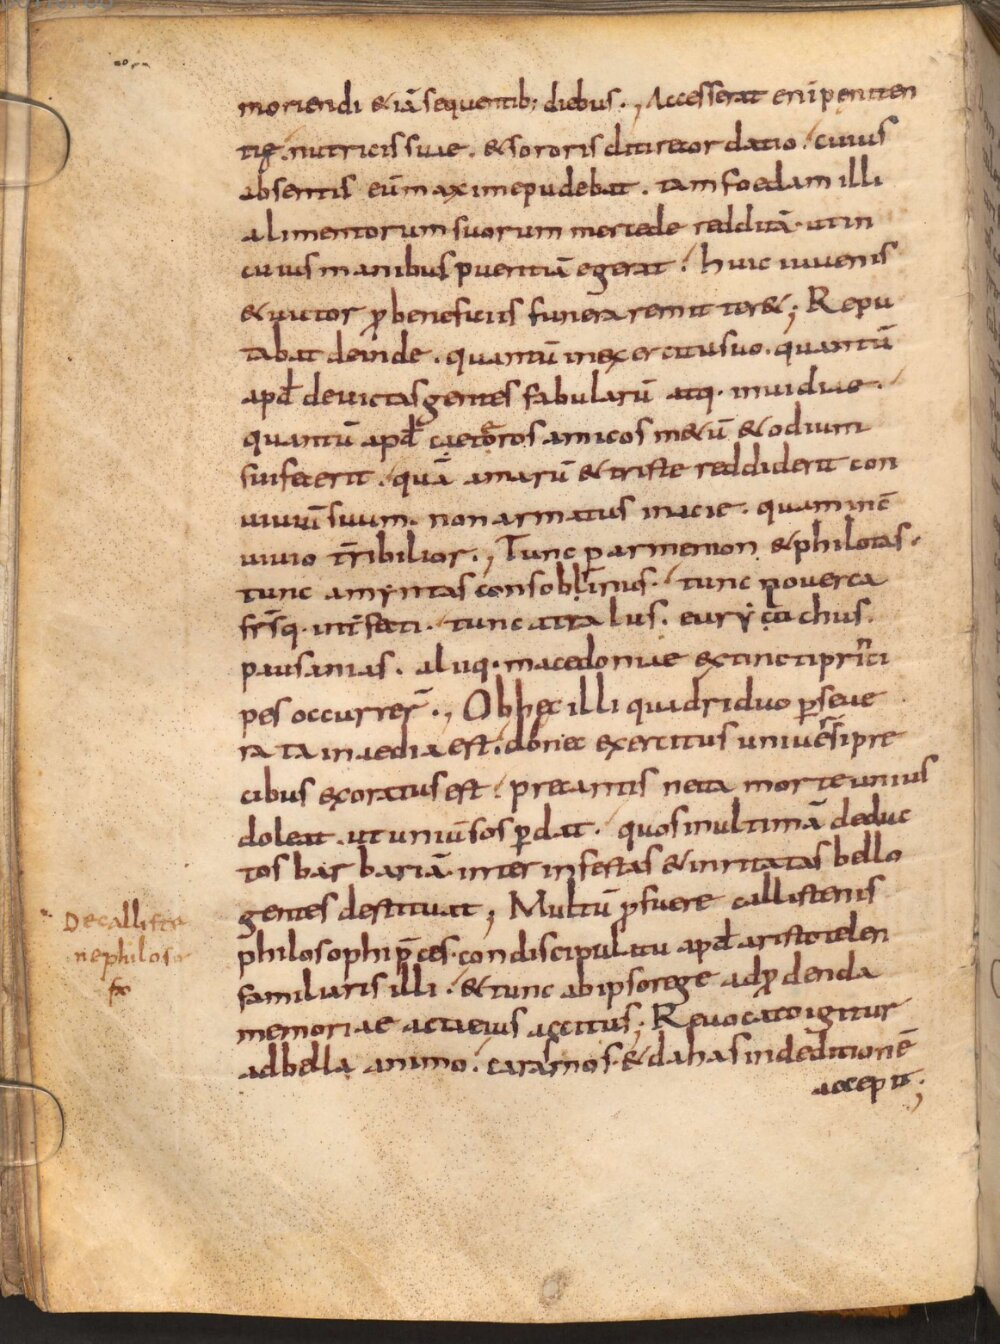 moriendi &iā sequentib; diebus., Accesserat eni peniten
tię. nutricis suae. & sororis ditirecordatio. cuius
absentis eū maxime pudebat. tam foedam illi
alimentorum suorum mercede redditā. ut in
cuius manibus pueritiā egerat. huic iuuenis
& uictor ꝓ beneficiis funera remitter&; Repu
tabat deinde. quantū in exercitu suo. quantū
apđ deuictas gentes fabularū atq. inuidiae.
quantū apđ caeteros amicos m&ū & odium
sui fecerit. quā amarū & triste reddiderit con
uiuiū suum. non armatus in acie. quam in c̄
uiuio t̄ribilior., Tunc parmenion & philotas.
tunc amyntas consobrinus. tunc nouerca
fr̄sq. int̄fecti. tunc attalus. eurylochus.
pausanias. aliiq. macedoniae extincti princi
pes occurrer̄., Ob hęc illi quadriduo ꝑseue
rata inaedia est. donec exercitus uniuersi pre
cibus exoratus est. precantis ne ita morte unius
doleat. ut uniūsos ꝑdat. quos in ultimā deduc
tos barbariā. inter infestas & inritatas bello
gentes destituat; Multū ꝓfuere callistenis
philosophi p̄ces. condiscipulatu apđ aristotelen
familiaris illi. & tunc ab ipso rege ad ꝓdenda
memoriae acta eius accitus; Reuocato igitur
ad bella animo. carasmos. & dahas in deditionē
accepit;
De calliste
ne philoso
fo